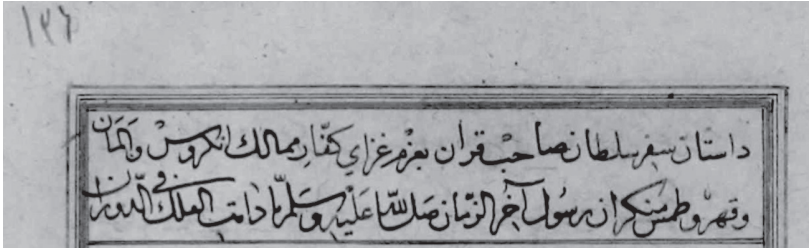 ١٢٦
داستان سفر سلطان صاحب قران بعزم غزاي كفّار ممالك انكروس والمان
وقهر وطمس منكران رسول آخر الزّمان صلى الله عليه وسلم ما دامت الفلك في الدّوران